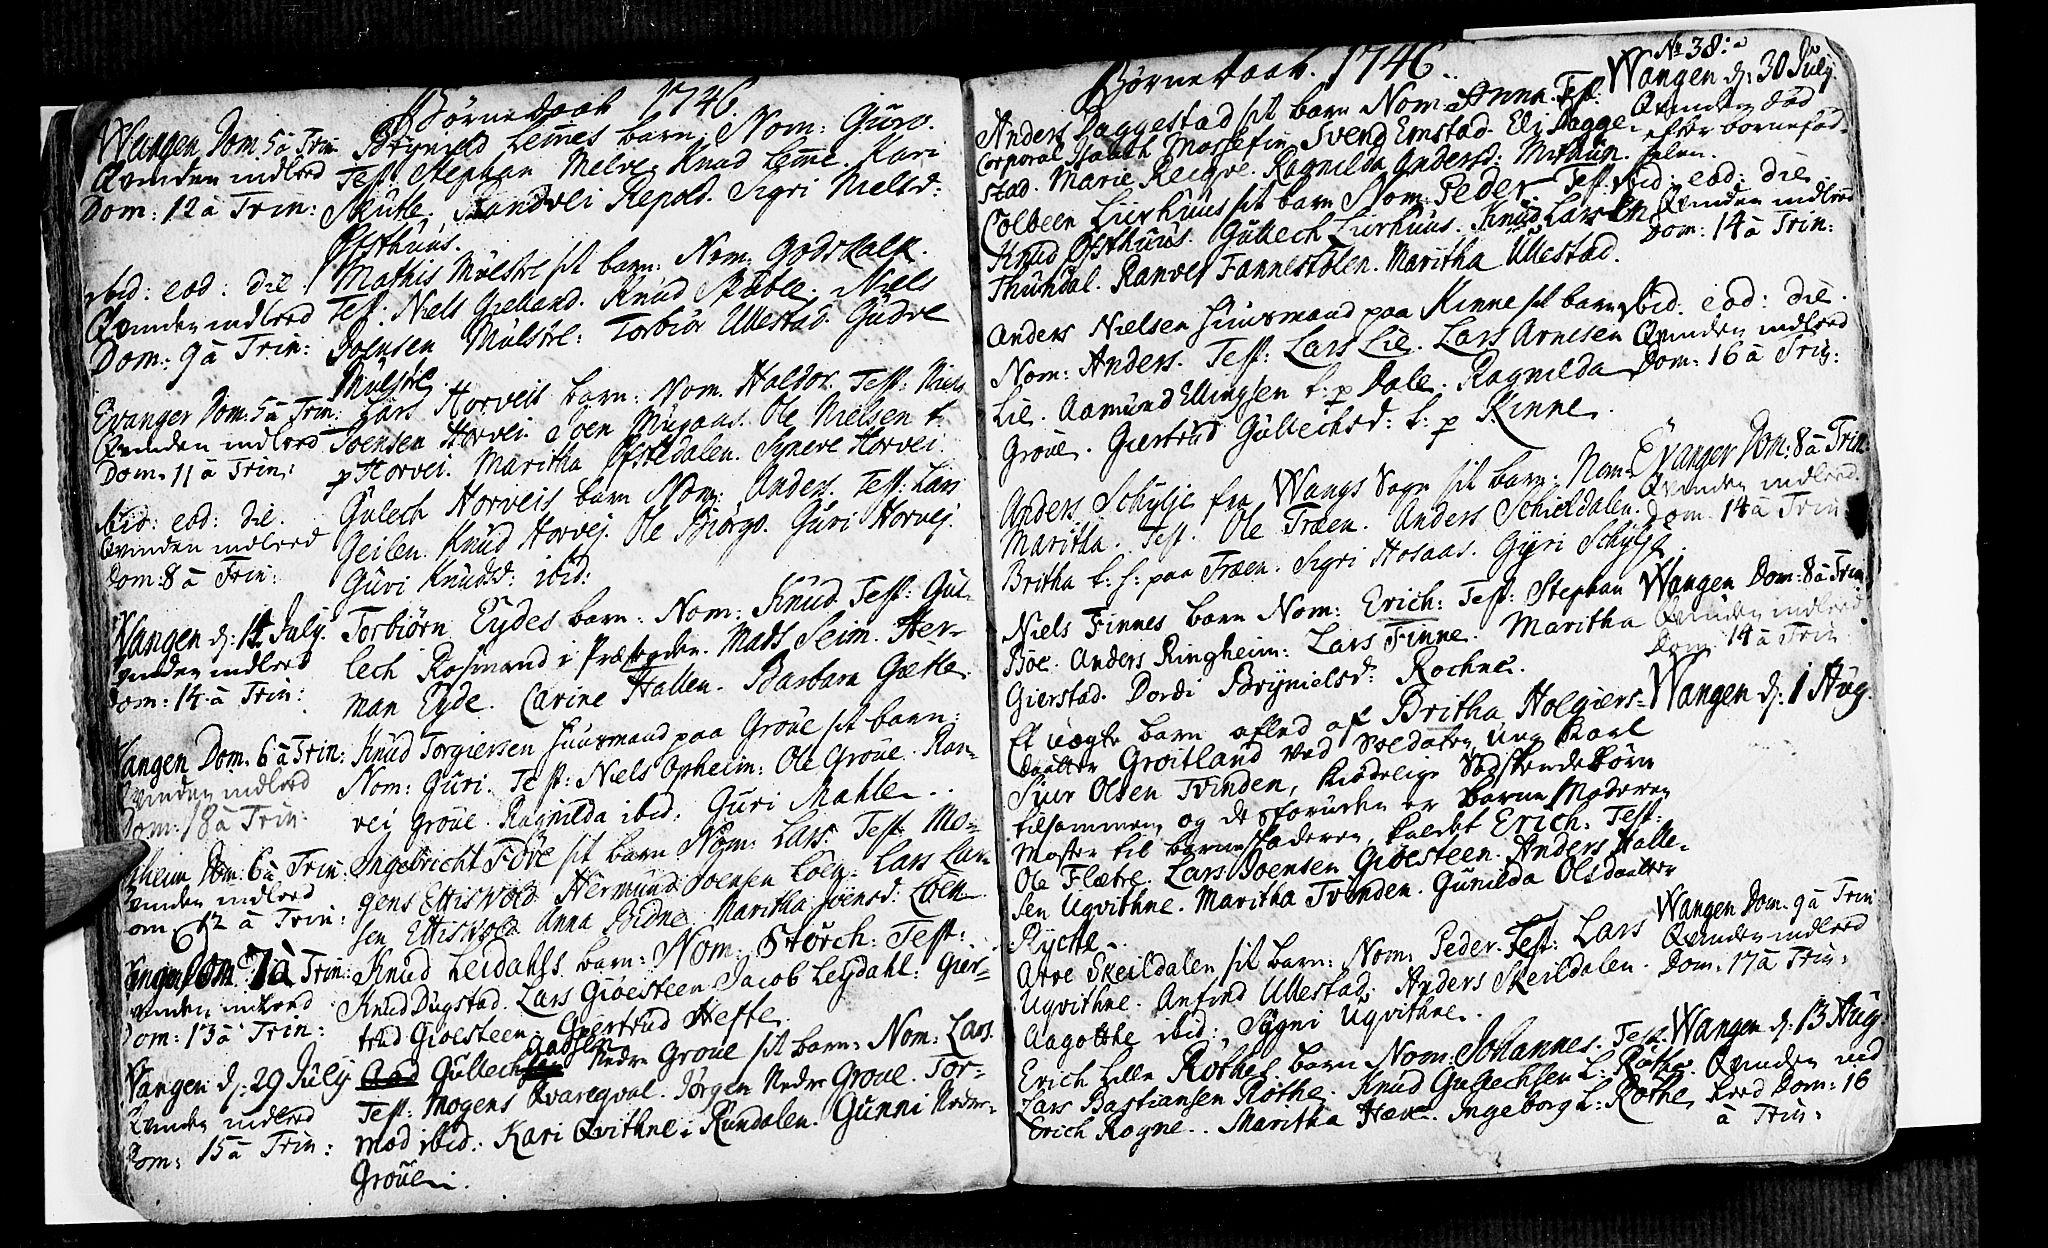 Børnedaab 1746.
Wangen Dom. 5 à Trin.
Qvinden indleed
Dom: 12 à Trin:
Brynield Lemes barn. Nom: Guro.
Test: Stephan Melve. Knud Leme. Kari
Skutle. Randvei Repald. Sigri Nielsd:
Ofsthuus.
ibid: eod: die.
Qvinden indleed
Dom: 9 à Trin:
Mathis Mølstre sit barn: Nom: Godskalk.
Test: Niels Gielland. Knud Skiple. Niels
Joensen Mølstre: Torbiør Ullestad. Gudve
Mølstre.
Evanger Dom. 5 à Trin:
Qvinden indleed
Dom: 11 à Trin:
Lars Horveis barn: Nom. Haldor. Test: Niels
Joensen Horvei. Joen Mugaas. Ole Nielsen t.
p Horvei. Maritha Ofstedalen. Syneve Horvei.
ibid: eod: die.
Qvinden indleed
Dom: 8 à Trin:
Gulech Horveis barn Nom: Anders. Test: Lars
Geilen. Knud Horvej. Ole Biørgo. Guri Horvej.
Guri Knudsd: ibid:
Wangen d: 14 July.
Qvinden indleed
Dom: 14 à Trin:
Torbiørn Eydes barn: Nom: Knud. Test: Gul-
lech Rosmand i Præstegden. Mads Seim. Her-
man Eyde. Carine Hallen. Barbara Giætle.
Wangen Dom. 6 à Trin:
Qvinden indleed
Dom: 18 à Trin:
Knud Torgiersen Huusmand paa Groue sit barn:
Nom: Guri. Test: Niels Opheim: Ole Groue. Ran-
vej Groue. Ragnilda ibid. Guri Mahle.
Dom: 6 à Trin:
Qvinden indleed
Dom: 12 à Trin:
Ingebricht Føre sit barn Nom: Lars. Test: Mo-
gens Ettisvold. Hermund Joensen Løen. Lars Lar-
sen Ettisvold. Anna Bidne. Maritha Joensd: Løen.
Wangen Dom: 7 à Trin:
Qvinden indleed
Dom: 13 à Trin:
Knud Leidahls barn: Nom: Størch: Test:
Knud Dugstad. Lars Giøesteen. Jacob Leydahl: Gier-
trud Giøesteen: Giertrud Hefte.
Wangen d: 29 July
Qvinden indleed
Dom: 15 à Trin:
Gullech Nedre Groue sit barn: Nom: Lars.
Test: Mogens Qvareqval. Jørgen Nedre Groue. Tor-
mod ibid: Kari Qvithne i Rundalen. Gunni Nedre-
Groue.
Børnedaab. 1746.
No 38:
Anders Daggestad sit barn Nom: Anna. Test.
Corporal Haldt Mossefin. Svend Emstad. Eli Dagge-
stad. Marie Recqve. Ragnilda Andersd: Mithun.
Wangen d: 30 July
Qvinden død
efter barnefød-
selen.
Colbeen Lierhuus sit barn Nom: Peder. Test:
Knud Ofsthuus. Gullech Lierhuus. Knud Larsen
Thundal. Ranvei Fannestølen. Maritha Ullestad.
ibid: eod: die.
Qvinden indleed
Dom: 14 à Trin:
Anders Nielsen Huusmand paa Kinne sit barn
Nom: Anders. Test: Lars Lie. Lars Arnesen
Lie. Aamund Ellingsen t. p Dale. Ragnilda
Groue. Giertrud Gullechsd: t. p Kinne.
ibid: eod: die.
Qvinden indleed
Dom: 16 à Trin:
Anders Schylje fra Wangs Sogn sit barn: Nom:
Maritha. Test. Ole Træen. Anders Schieldalen.
Britha t. h: paa Træen. Sigri Hosaas. Gyri Schylje.
Evanger Dom: 8 à Trin:
Qvinden indleed
Dom: 14 à Trin
Niels Finnes barn Nom: Erich: Test: Stephan
Bøe. Anders Ringheim: Lars Finne. Maritha
Gierstad. Dordi Brynielsd: Rochne.
Wangen Dom: 8 à Trin.
Qvinden indleed
Dom: 14 à Trin
Et uægte barn aflad af Britha Holgiers-
daatter Groitland ved Soldaten ung Karl
Siur Olsen Tvinden, Kiødelige Sødskendebørn
tilsammen, og desforuden er barne Moderen
Moster til barnefaderen, kaldet Erich: Test:
Ole Flætre. Lars Joensen Giøesteen. Anders Halle-
sen Uqvithne. Maritha Tvinden. Gunilda Olsdaatter
Rychte.
Wangen d: 1 Aug.
Arve Skeildalen sit barn: Nom: Peder. Test: Lars
Uqvithne. Anfind Ullestad: Anders Skeildalen.
Aagotthe ibid: Sygni Uqvithne.
Wangen Dom. 9 à Trin
Qvinden indleed
Dom: 17 à Trin:
Erich Lille Røthes barn Nom: Johannes. Test:
Lars Bastiansen Røthe. Knud Gulechsen L: Røthe.
Erich Rogne. Maritha Hæve. Ingeborg L: Røthe.
Wangen d: 13 Aug:
Qvinden ind
leed Dom: 16
à Trin: